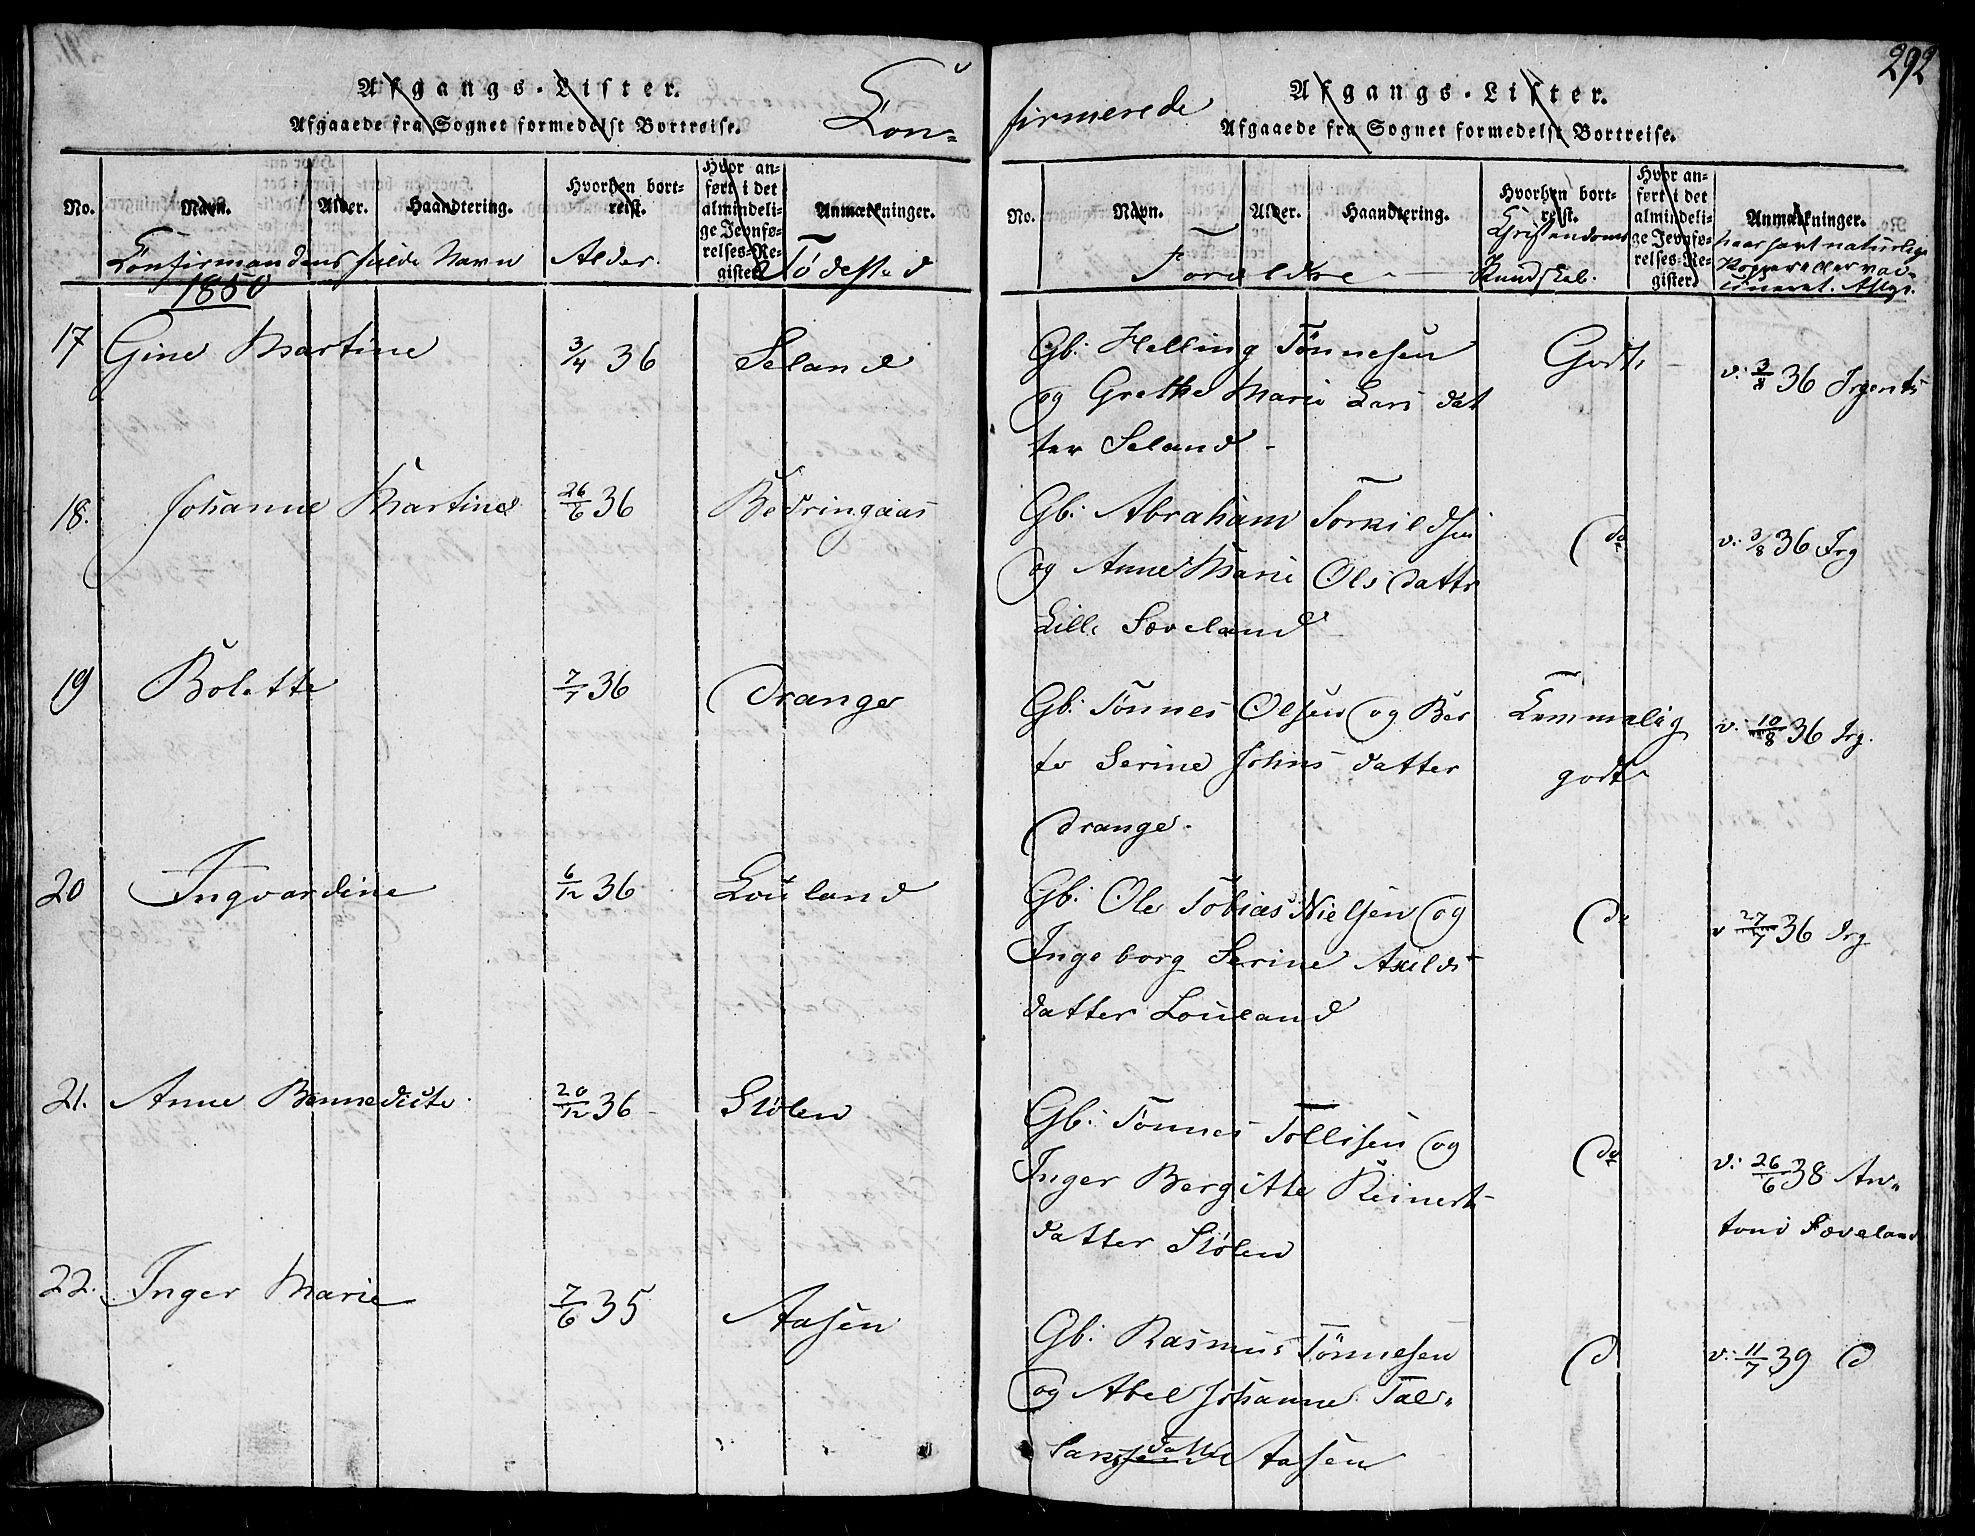 292
Afgangs-Lister.
Afgaaede fra Sognet formedelst Bortreise.
Con=
firmerede
Afgangs-Lister.
Afgaaede fra Sognet formedelst Bortreise.
No. Navn. Alder. Haandtering. Hvorhen bortreist. Hvor anført i det almindelige Jevnførelses-Register Anmærkninger.
No. Navn. Alder. Haandtering. Hvorhen bortreist. Hvor anført i det almindelige Jevnførelses-Register Anmærkninger.
Confirmandens fulde Navn Alder. Fødested
Forældre Christendoms Kundskab.
1850
17 Gine Martine 3/4 36 Seland
Gb: Helling Tönnesen Godt v: 3/8 36 Irgents
og Grethe Marie Lars dat
ter Seland
18. Johanne Martine 26/6 36 Bedringaas
Gb: Abraham Torkildsen do v: 3/8 36 Irg
og Anne Marie Ols datter
Lille Sæveland
19 Bolette 7/7 36 Drange
Gb: Tönnes Olsen og Ber Temmelig v: 10/8 36 Irg.
te Serine Johns datter godt
Drange.
20 Ingvardine 6/12 36 Louland
Gb: Ole Tobias Nielsen og do v 27/7 36 Irg
Ingeborg Serine Axelds
datter Louland
21. Anne Bennedicte 20/12 36 Stölen
Gb: Tönnes Tollisen og do v: 26/6 38 An=
Inger Bergitte Reinert toni Sæveland
datter Stölen
22. Inger Marie 7/6 35 Aasen
Gb: Rasmus Tönnesen d v: 11/7 39 d
og Abel Johanne Tal=
datter Aasen